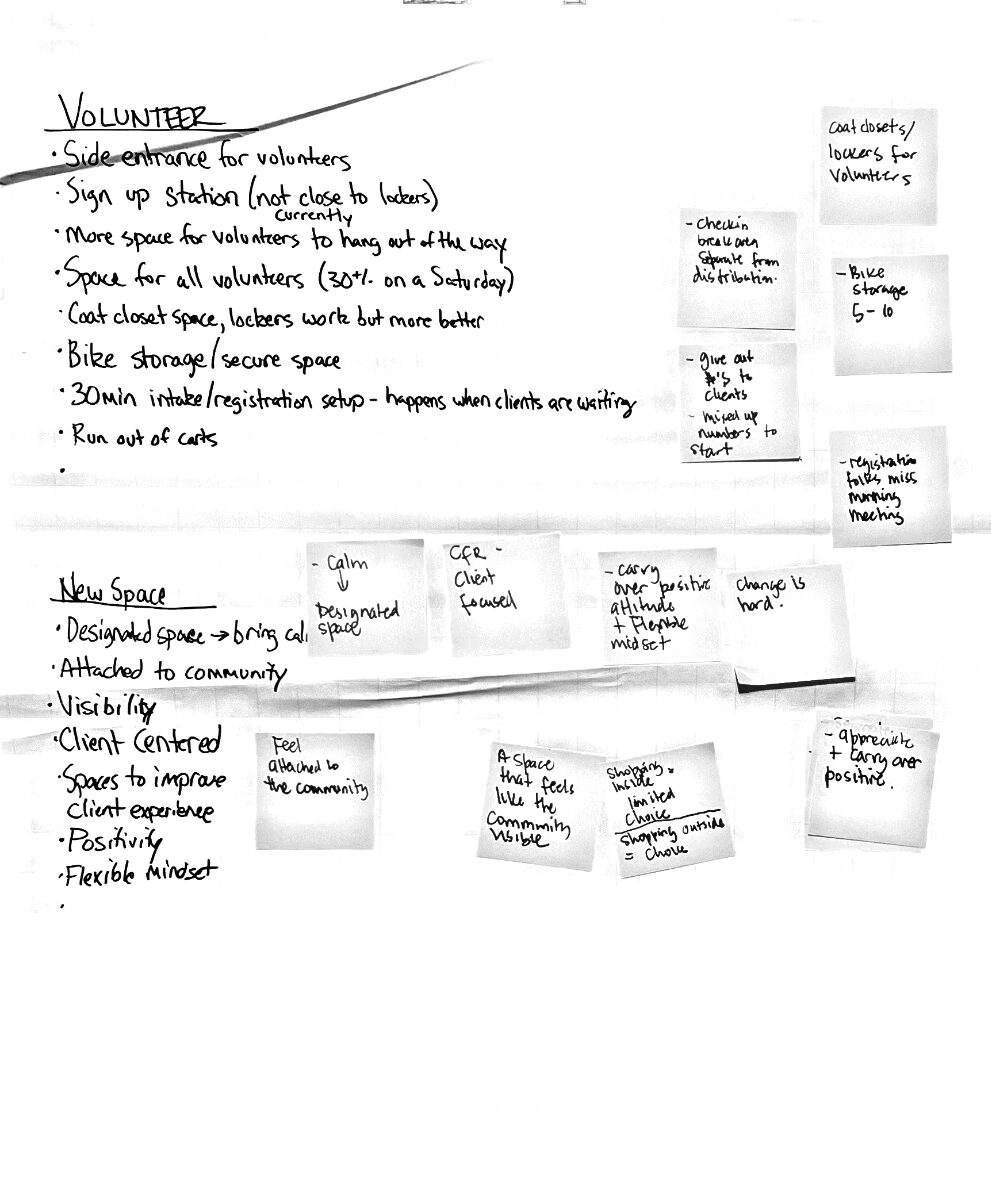 VOLUNTEER
· Side entrance for volunteers
· Sign up station (not close to lockers)
currently
· More space for volunteers to hang out of the way
· Space for all volunteers (30+/. on a Saturday)
· Coat closet space, lockers work but more better
· Bike storage/secure space
· 30min intake/registration setup - happens when clients are waiting
· Run out of carts
·
coat closets/
lockers for
volunteers
- checkin
break area
separate from
distribution.
- Bike
storage
5-10
- give out
#'s to
clients
- mixed up
numbers to
start
- registration
folks miss
morning
meeting
New Space
· Designated space → bring
· Attached to community
· Visibility
· Client Centered
· Spaces to improve
Client experience
· Positivity
· Flexible mindset
·
- Calm
↓
Designated
space
CFR -
Client
focused
- carry
over positive
attitude
+ Flexible
midset
change is
hard.
Feel
attached to
the community
A space
that feels
like the
community
visible
Shopping =
inside
limited
choice
shopping outside
= choice
- appreciate
+ carry over
positive.